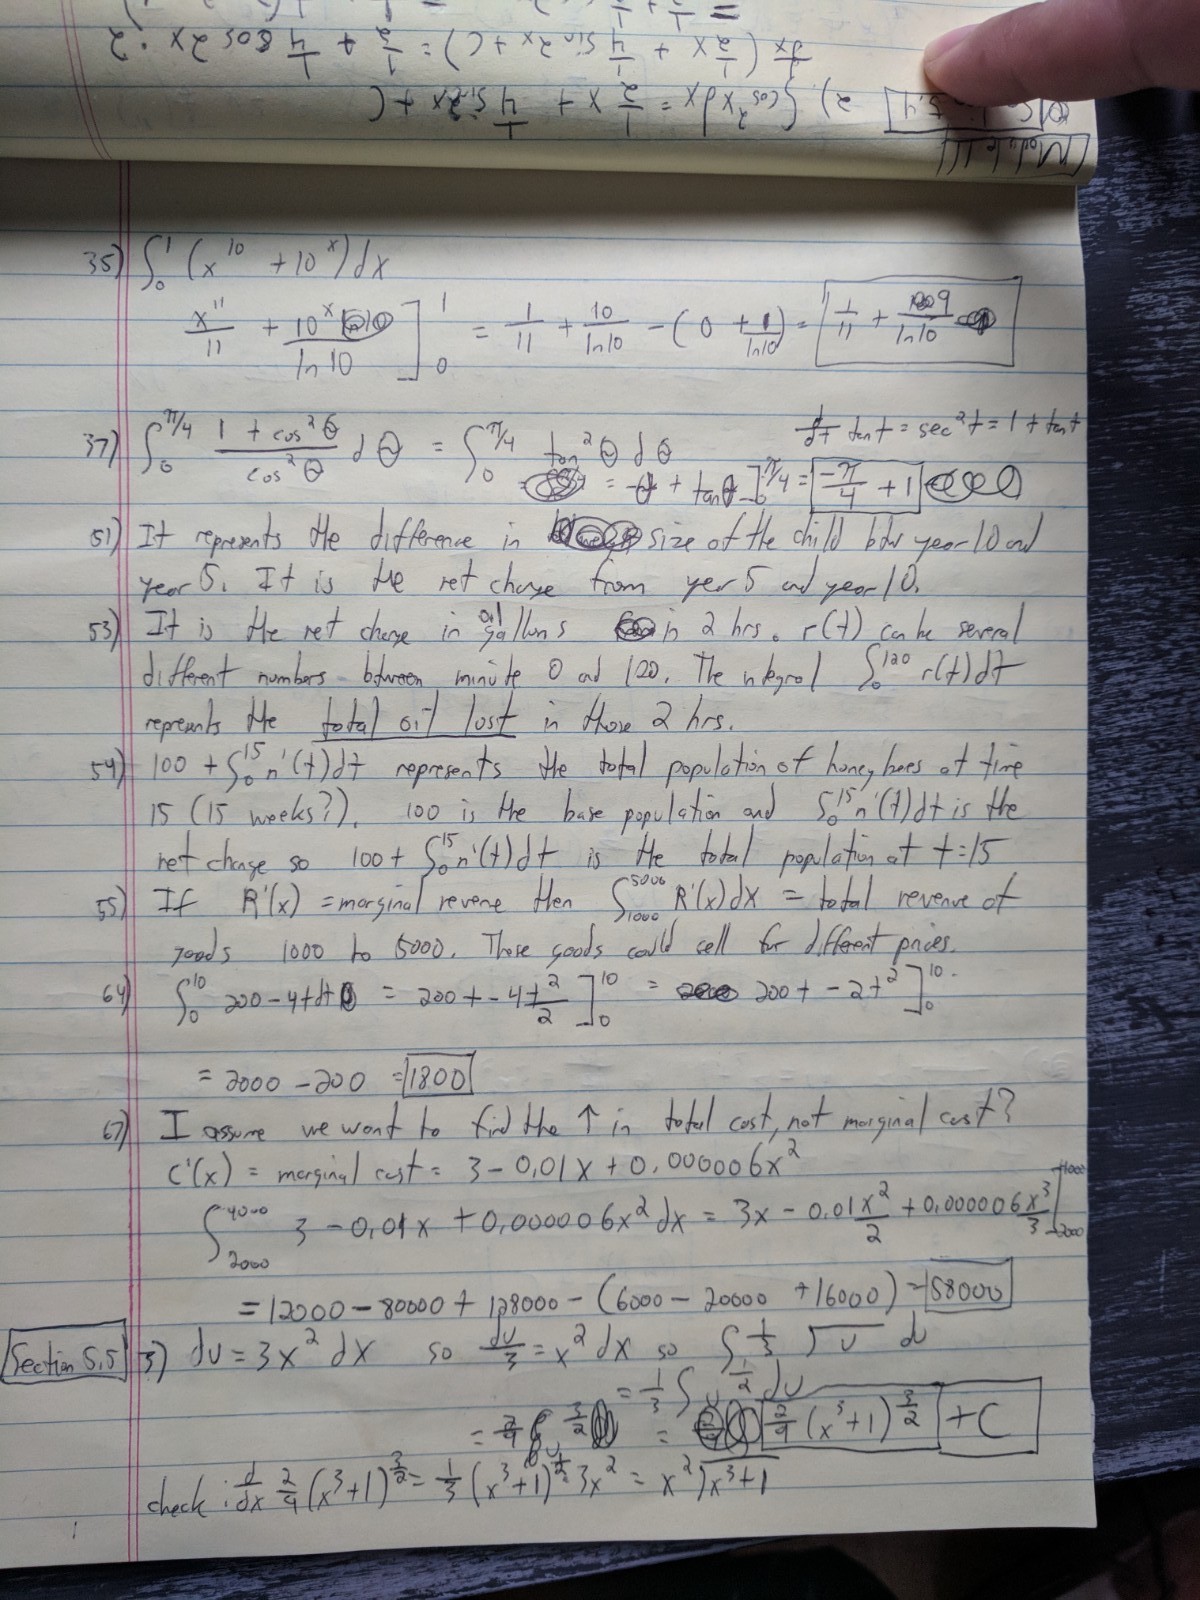 = 1/2 + 1/2
d/dx (1/2 x + 1/4 sin 2x + C) = 1/2 + 1/4 cos 2x · 2
2) ∫cos²x dx = 1/2 x + 1/4 sin 2x + C
Module 11
35) ∫₀¹ (x¹⁰ + 10ˣ) dx
x¹¹/11 + 10ˣ/ln10 ]₀¹ = 1/11 + 10/ln10 - (0 + 1/ln10) = 1/11 + 9/ln10
37) ∫₀^π/4 (1 + cos²θ)/cos²θ dθ = ∫₀^π/4 tan²θ dθ
d/dt tan t = sec²t = 1 + tan t
= -θ + tanθ ]₀^π/4 = -π/4 + 1
51) It represents the difference in size of the child btw year 10 and
year 5. It is the net change from year 5 and year 10.
53) It is the net change in oil gallons in 2 hrs. r(t) can be several
different numbers between minute 0 and 120. The integral ∫₀¹²⁰ r(t)dt
represents the total oil lost in those 2 hrs.
54) 100 + ∫₀¹⁵ n'(t)dt represents the total population of honeybees at time
15 (15 weeks?). 100 is the base population and ∫₀¹⁵ n'(t)dt is the
net change so 100 + ∫₀¹⁵ n'(t)dt is the total population at t=15
55) If R'(x) = marginal revenue then ∫₁₀₀₀⁵⁰⁰⁰ R'(x)dx = total revenue of
goods 1000 to 5000. Those goods could cell for different prices.
64) ∫₀¹⁰ 200 - 4t dt = 200t - 4t²/2 ]₀¹⁰ = 200t - 2t² ]₀¹⁰
= 2000 - 200 = 1800
67) I assume we want to find the ↑ in total cost, not marginal cost?
C'(x) = marginal cost = 3 - 0.01x + 0.000006x²
∫₂₀₀₀⁴⁰⁰⁰ 3 - 0.01x + 0.000006x² dx = 3x - 0.01x²/2 + 0.000006x³/3 ]₂₀₀₀⁴⁰⁰⁰
= 12000 - 80000 + 128000 - (6000 - 20000 + 16000) = 58000
Section 5.5 3) du = 3x² dx so du/3 = x² dx so ∫ 1/3 √u du
= 1/3 ∫ u^1/2 du
= 2/9 u^3/2 = 2/9 (x³+1)^3/2 + C
check: d/dx 2/9 (x³+1)^3/2 = 1/3 (x³+1)^1/2 · 3x² = x² √x³+1